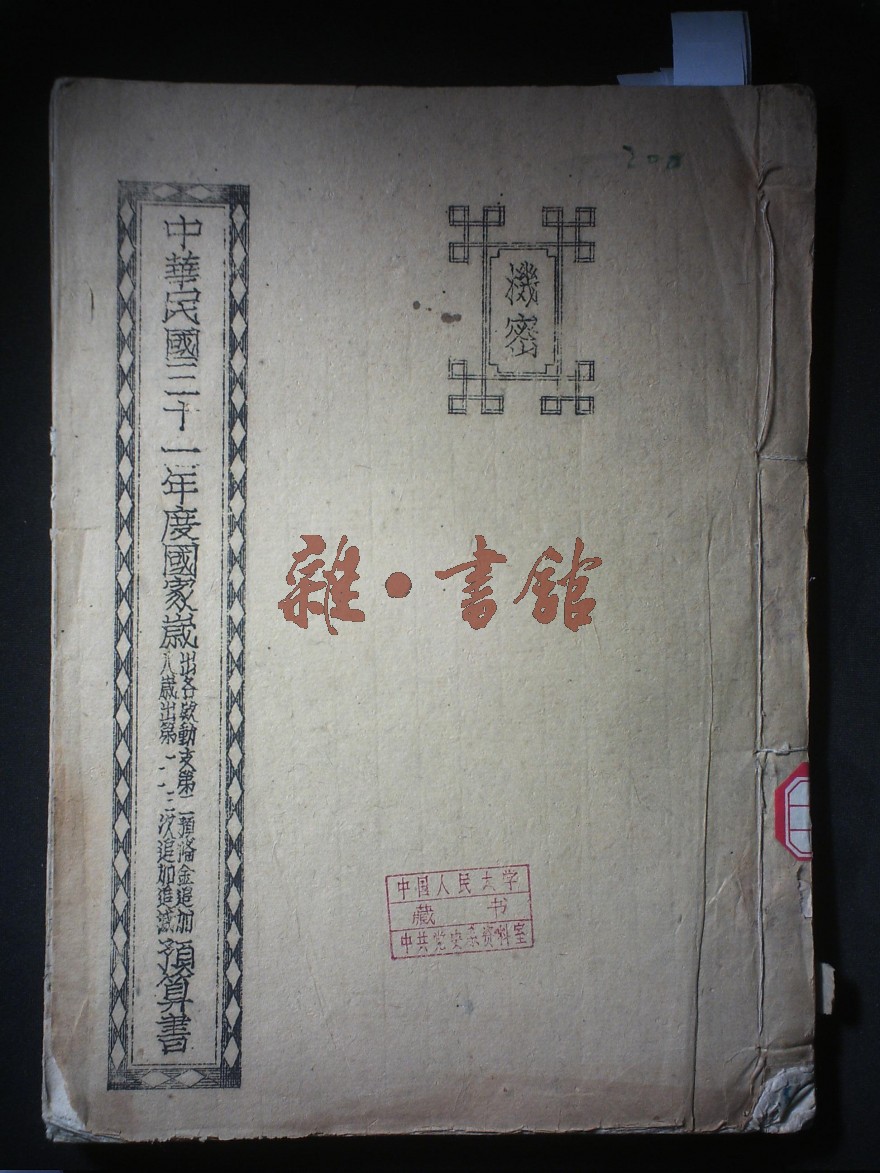 200
機密
中華民國三十一年度國家歲
出各款動支第二預備金追加
入歲出第一、二次追加追減
預算書
雜·書館
中国人民大学
藏书
中共党史系资料室